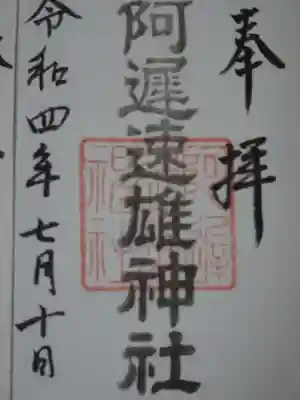 奉拝
阿遲速雄神社
令和四年七月十日